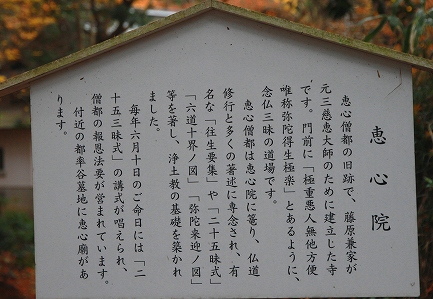 恵心院
恵心僧都の旧跡で、藤原兼家が
元三慈恵大師のために建立した寺
です。門前に「極重悪人無他方便
唯称弥陀得生極楽」とあるように、
念仏三昧の道場です。
恵心僧都は恵心院に篭り、仏道
修行と多くの著述に専念され、有
名な「往生要集」や「二十五昧式」
「六道十界ノ図」「弥陀来迎ノ図」
等を著し、浄土教の基礎を築かれ
ました。
毎年六月十日のご命日には「二
十五三昧式」の講式が唱えられ、
僧都の報恩法要が営まれています。
付近の都率谷墓地に恵心廟があ
ります。